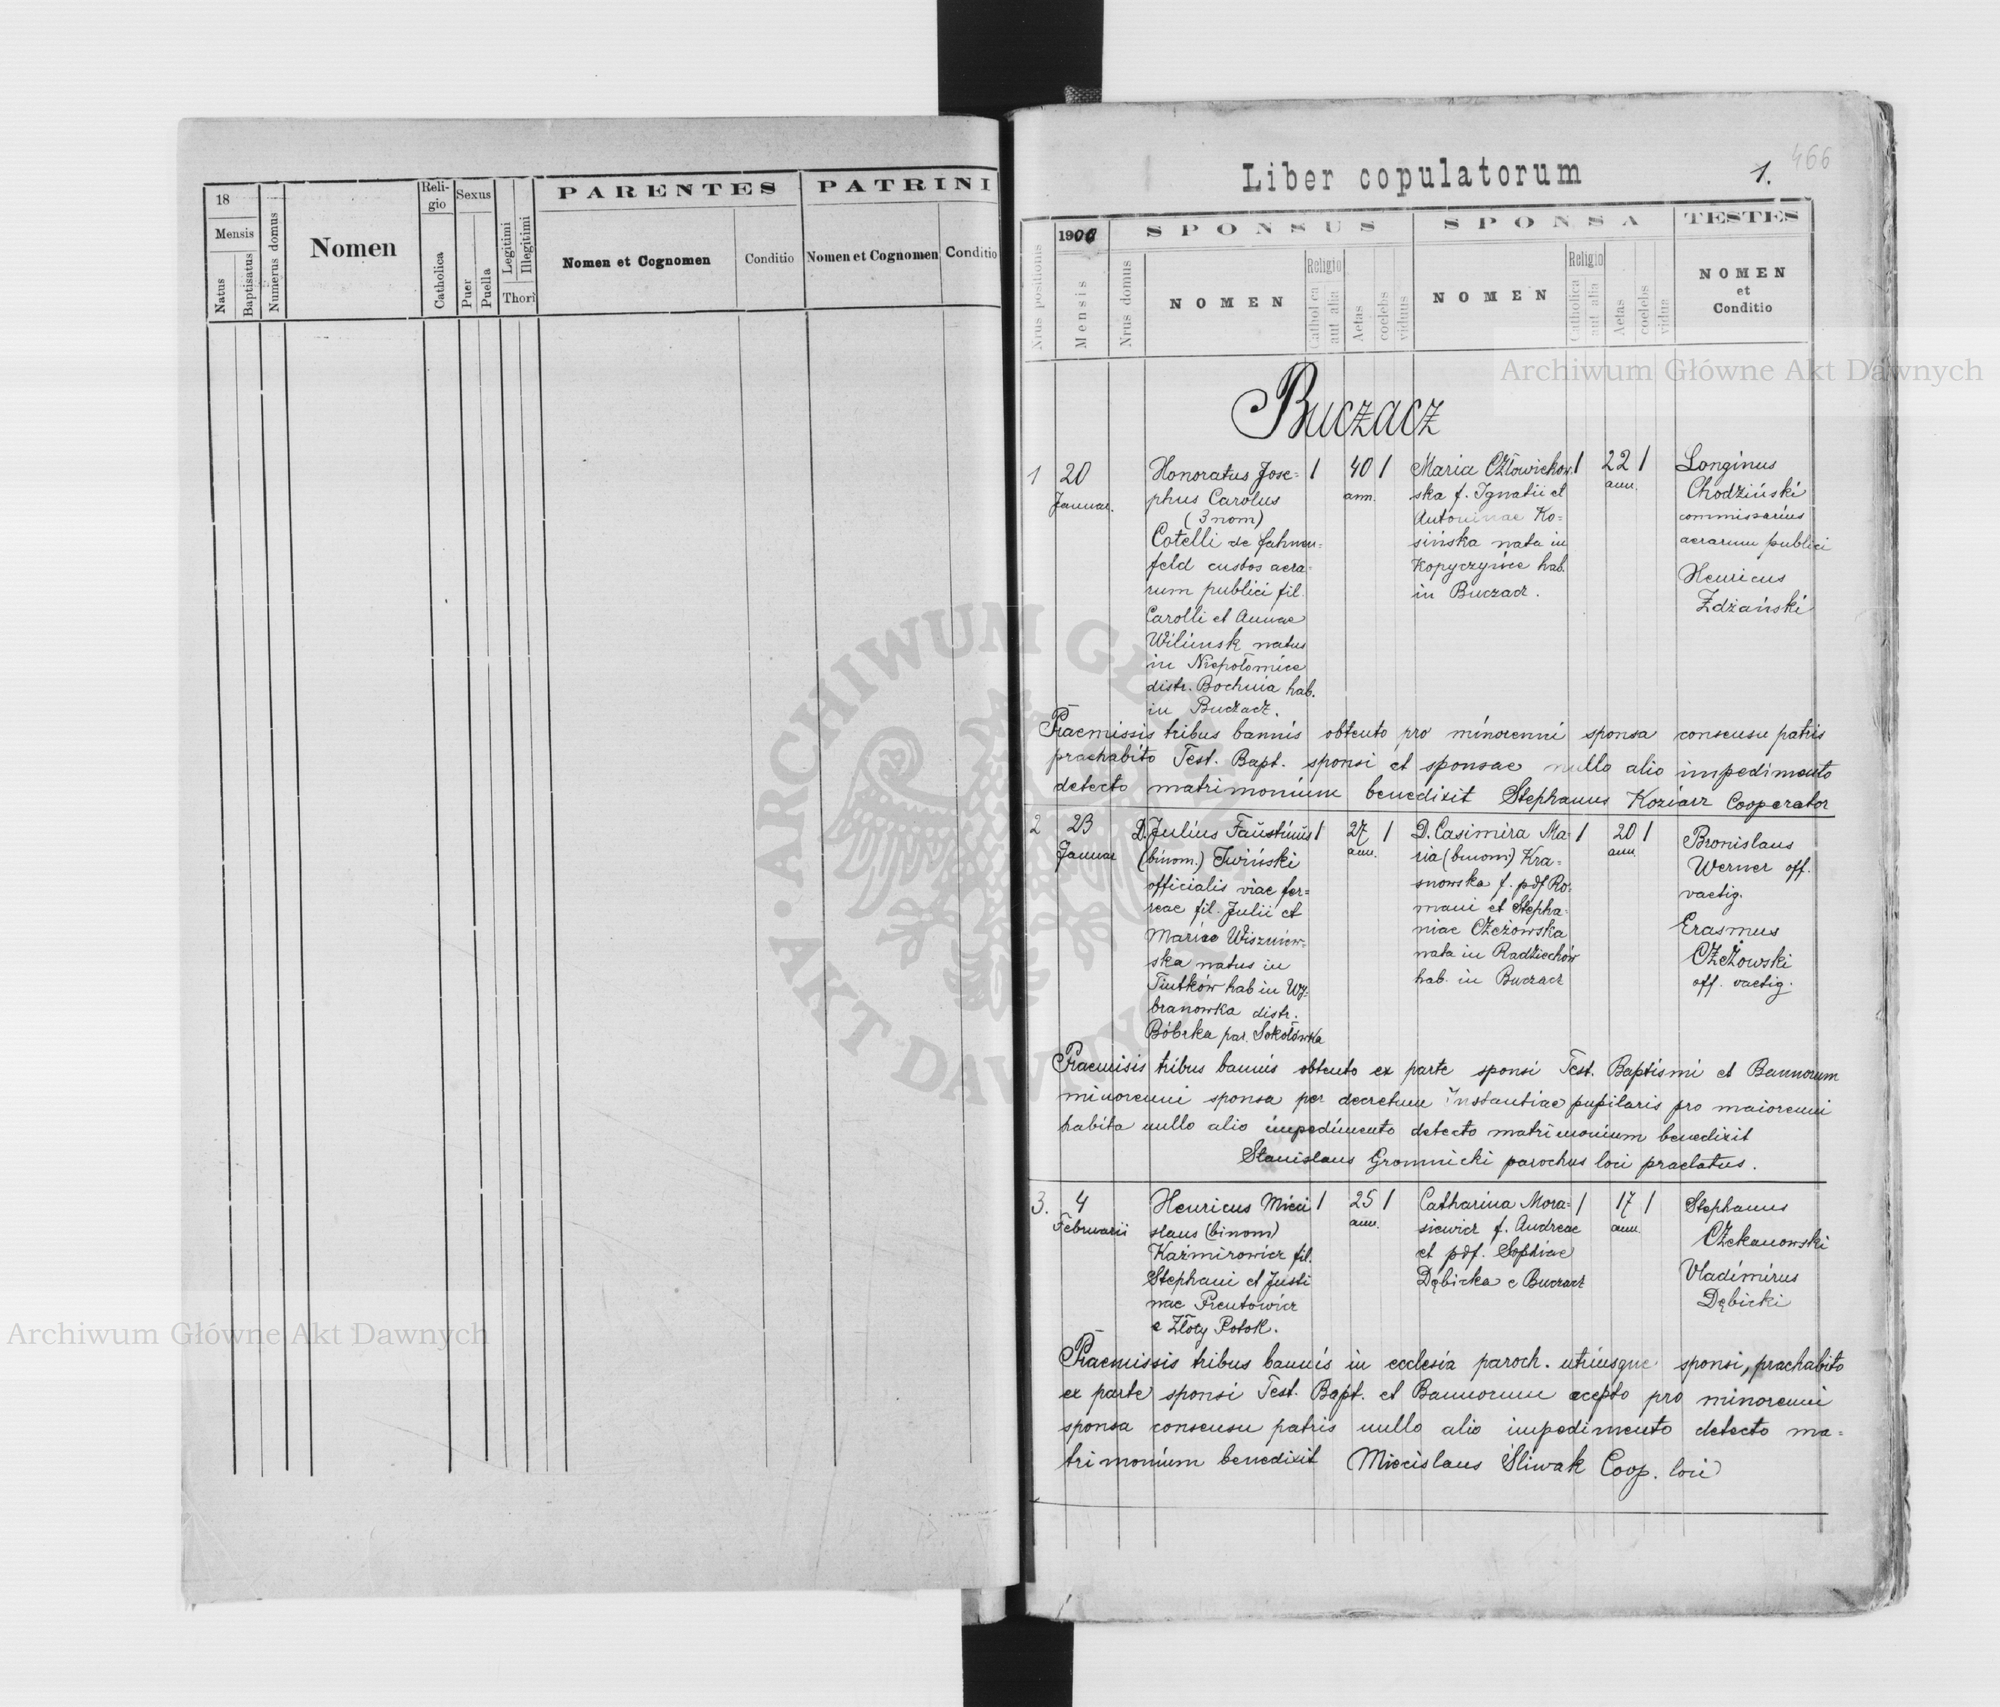 18
Mensis
Natus
Baptisatus
Numerus domus
Nomen
Reli-
gio
Catholica
Sexus
Puer
Puella
Legitimi
Illegitimi
Thori
PARENTES
Nomen et Cognomen
Conditio
PATRINI
Nomen et Cognomen
Conditio
466
Liber copulatorum 1.
Nrus positionis
1900
Mensis
SPONSUS
Nrus domus
NOMEN
Religio
Catholica
aut alia
Aetas
coelebs
viduus
SPONSA
NOMEN
Religio
Catholica
aut alia
Aetas
coelebs
vidua
TESTES
NOMEN
et
Conditio
Buczacz
1
20
Januar.
Honoratus Jose=
phus Carolus
(3 nom)
Cotelli de Fahnen=
feld custos aera=
rum publici fil.
Carolli et Annae
Wilimsk natus
in Niepołomice
distr. Bochnia hab.
in Buczacz.
/ 40 /
ann.
Maria Człowiekow
ska f. Ignatii et
Antoninae Ko=
sińska nata in
Kopyczyńce hab.
in Buczacz.
/ 22 /
ann.
Longinus
Chodziński
commissarius
aerarum publici
Henricus
Zdzański
Praemissis tribus bannis obtento pro minorenni sponsa consensu patris
praehabito Test. Bapt. sponsi et sponsae nullo alio impedimento
detecto matrimonium benedixit Stephanus Koziarz Cooperator
2
23
Januar
D. Julius Faustinus
(binom.) Iwiński
officialis viae fer=
reae fil. Julii et
Mariae Wiszniew=
ska natus in
Tiutków hab in Wy=
branowka distr.
Bóbrka par. Sokołówka
/ 27 /
ann.
D. Casimira Ma=
ria (binom) Kra=
snowska f. pdf Ro=
mani et Stepha=
niae Czeżowska
nata in Radziechów
hab. in Buczacz
/ 20 /
ann
Bronislaus
Werner off.
vectig.
Erasmus
Czeżowski
off. vectig.
Praemisis tribus bannis obtento ex parte sponsi Test. Baptismi et Bannorum
minorenni sponsa per decretum Instantiae pupilaris pro maiorenni
habita nullo alio impedimento detecto matrimonium benedixit
Stanislaus Gromnicki parochus loci praelatus.
3.
4
Februarii
Henricus Mieci
slaus (binom)
Kaźmirowicz fil.
Stephani et Justi
nae Prentowicz
e Złoty Potok.
/ 25 /
ann.
Catharina Mora=
siewicz f. Andreae
et pdf. Sophiae
Dębicka e Buczacz
/ 17 /
ann.
Stephanus
Czekanowski
Vladimirus
Dębicki
Praemissis tribus bannis in ecclesia paroch. utriusque sponsi, praehabito
ex parte sponsi Test. Bapt. et Bannorum acepto pro minorenni
sponsa consensu patris nullo alio impedimento detecto ma=
trimonium benedixit Miecislaus Śliwak Coop. loci
Archiwum Główne Akt Dawnych
Archiwum Główne Akt Dawnych